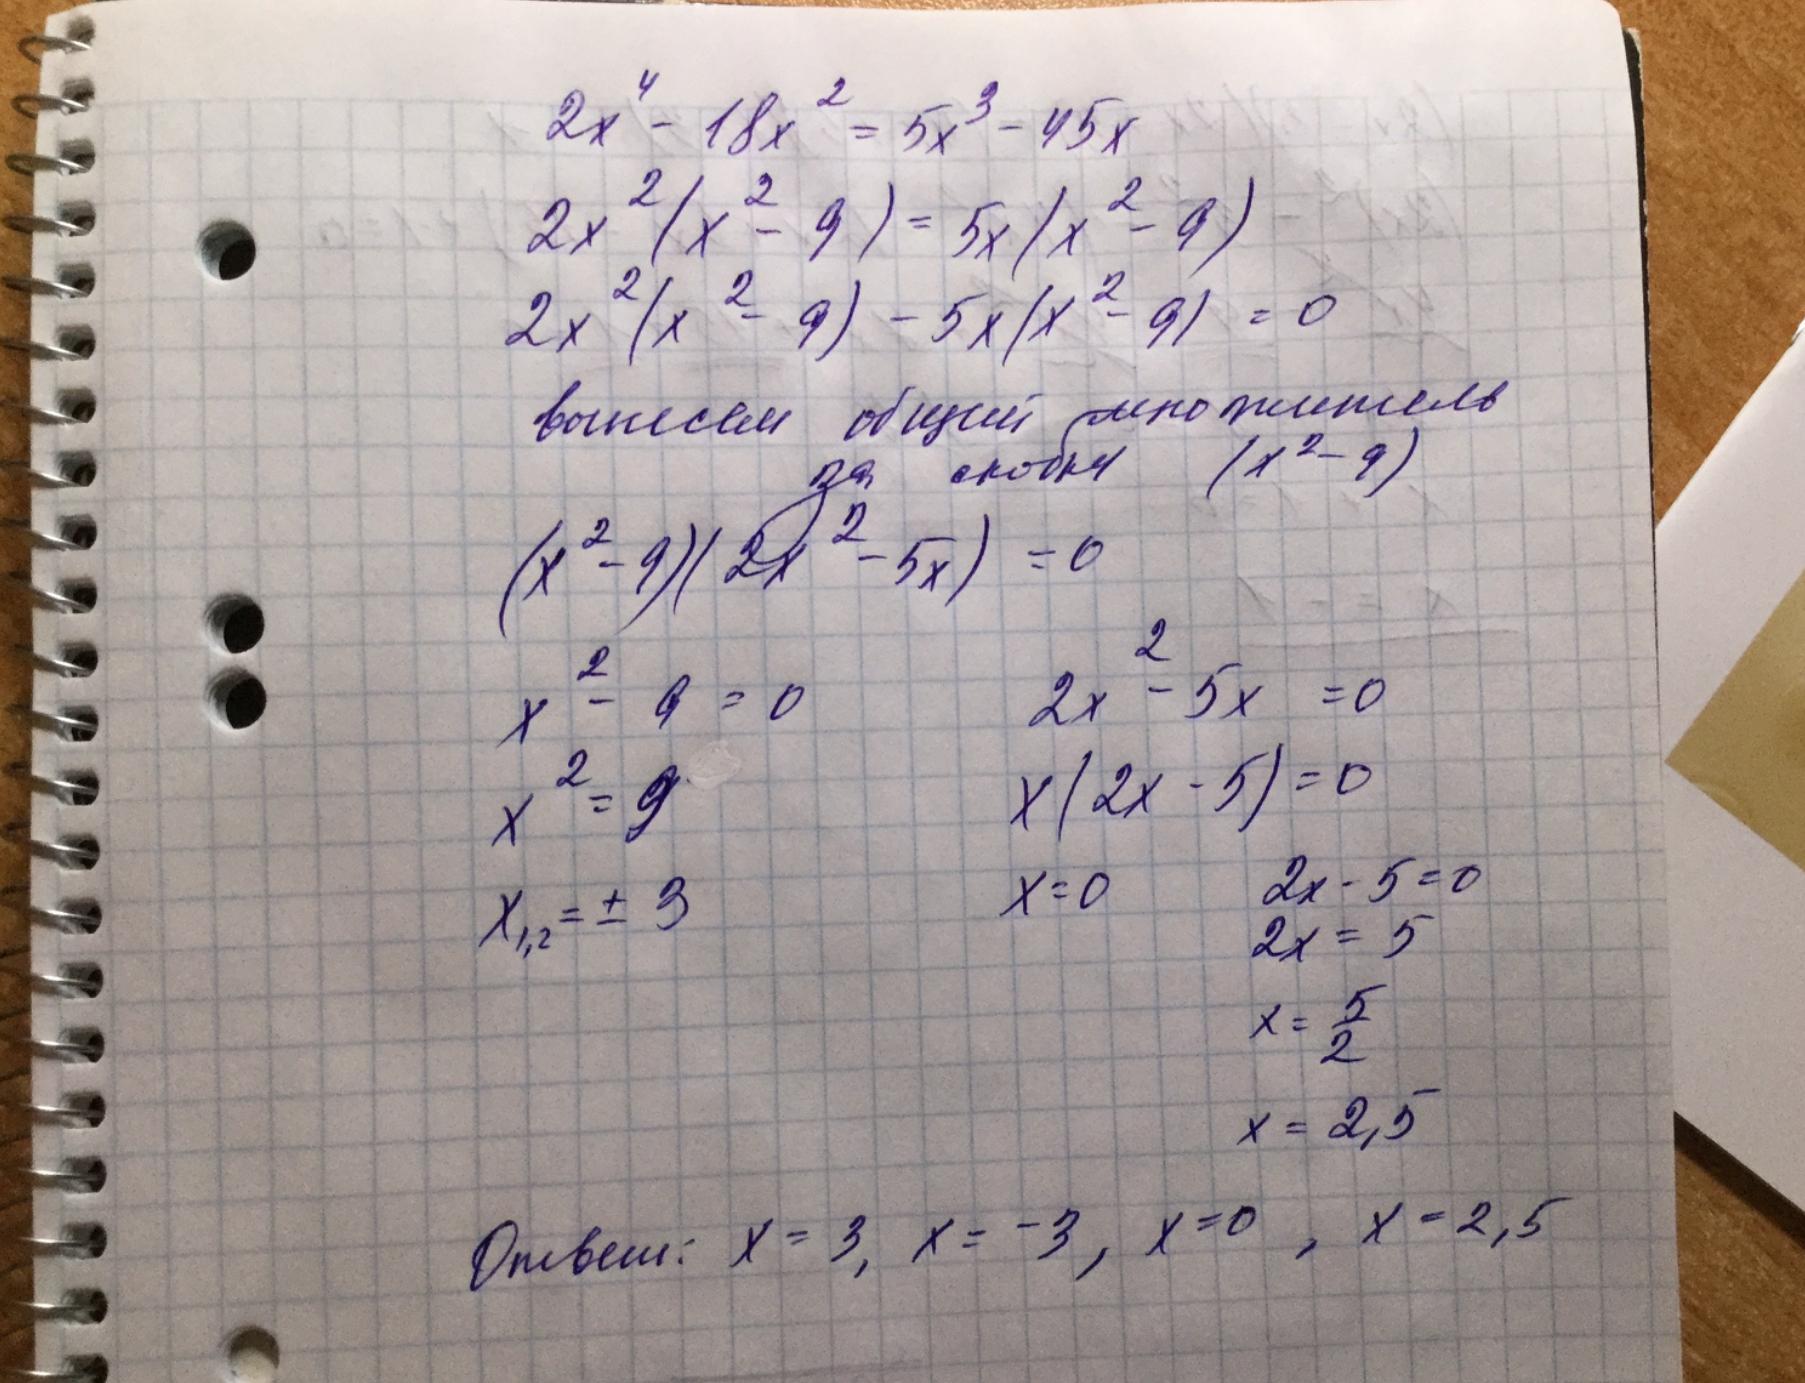 2x⁴ - 18x² = 5x³ - 45x
2x²(x² - 9) = 5x(x² - 9)
2x²(x² - 9) - 5x(x² - 9) = 0
вынесем общий множитель
за скобки (x² - 9)
(x² - 9)(2x² - 5x) = 0
x² - 9 = 0
x² = 9
x₁,₂ = ± 3
2x² - 5x = 0
x(2x - 5) = 0
x = 0
2x - 5 = 0
2x = 5
x = 5/2
x = 2,5
Ответ: x = 3, x = -3, x = 0, x = 2,5